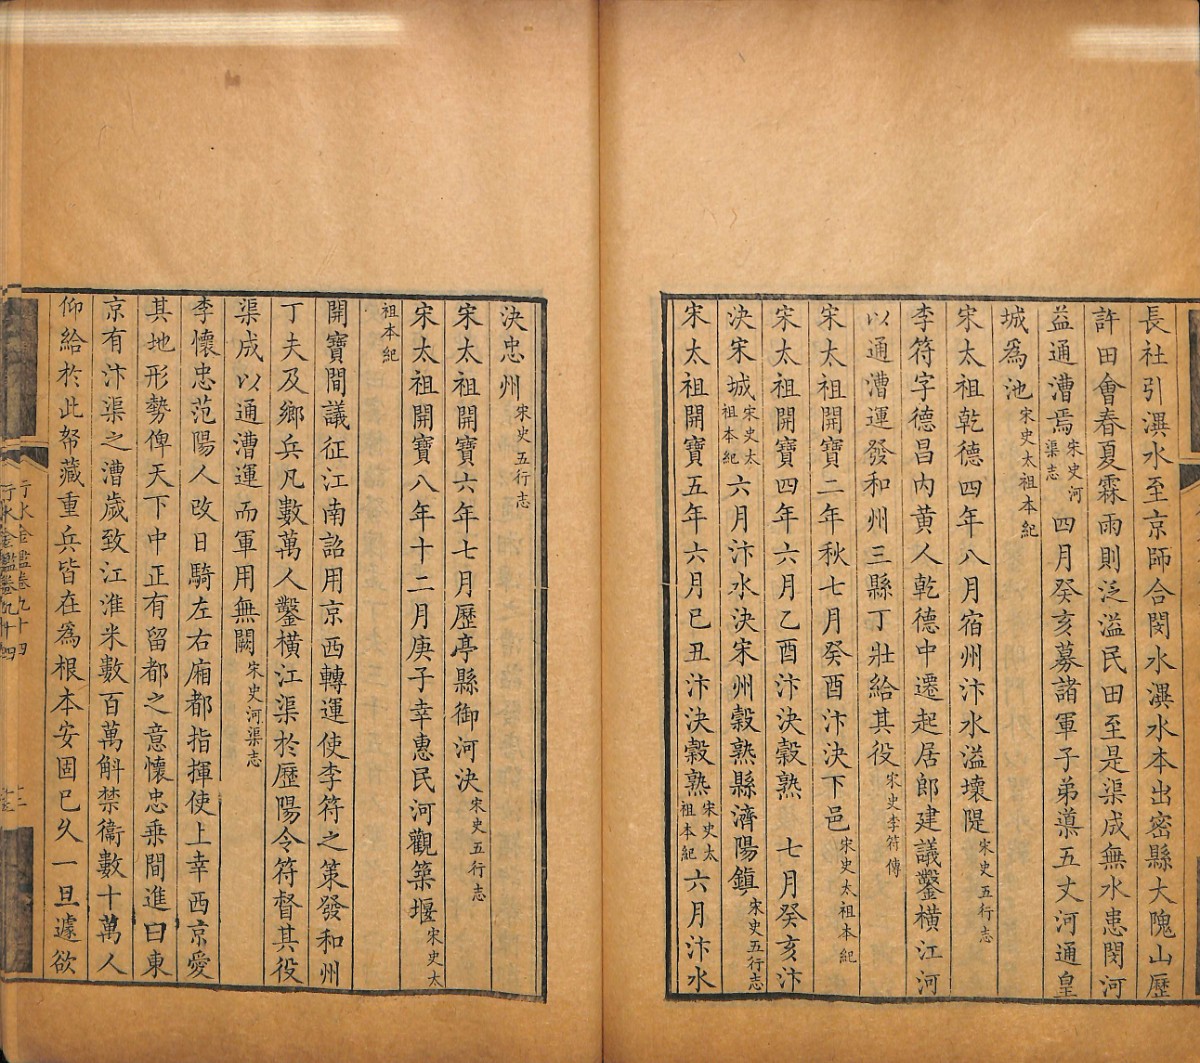 長社引潩水至京師合閔水潩水本出密縣大隗山歷
許田會春夏霖雨則泛溢民田至是渠成無水患閔河
益通漕焉宋史河渠志四月癸亥募諸軍子弟導五丈河通皇
城爲池宋史太祖本紀
宋太祖乾德四年八月宿州汴水溢壞隄宋史五行志
李符字德昌內黃人乾德中遷起居郎建議鑿橫江河
以通漕運發和州三縣丁壯給其役宋史李符傳
宋太祖開寶二年秋七月癸酉汴決下邑宋史太祖本紀
宋太祖開寶四年六月乙酉汴決穀熟 七月癸亥汴
決宋城宋史太祖本紀六月汴水決宋州穀熟縣濟陽鎮宋史五行志
宋太祖開寶五年六月巳丑汴決穀熟宋史太祖本紀六月汴水
決忠州宋史五行志
宋太祖開寶六年七月歷亭縣御河決宋史五行志
宋太祖開寶八年十二月庚子幸惠民河觀築堰宋史太
祖本紀
開寶間議征江南詔用京西轉運使李符之策發和州
丁夫及鄉兵凡數萬人鑿橫江渠於歷陽令符督其役
渠成以通漕運而軍用無闕宋史河渠志
李懷忠范陽人改日騎左右廂都指揮使上幸西京愛
其地形勢俾天下中正有留都之意懷忠乘間進曰東
京有汴渠之漕歲致江淮米數百萬斛禁衞數十萬人
仰給於此帑藏重兵皆在爲根本安固巳久一旦遽欲
行水金鑑卷九十四